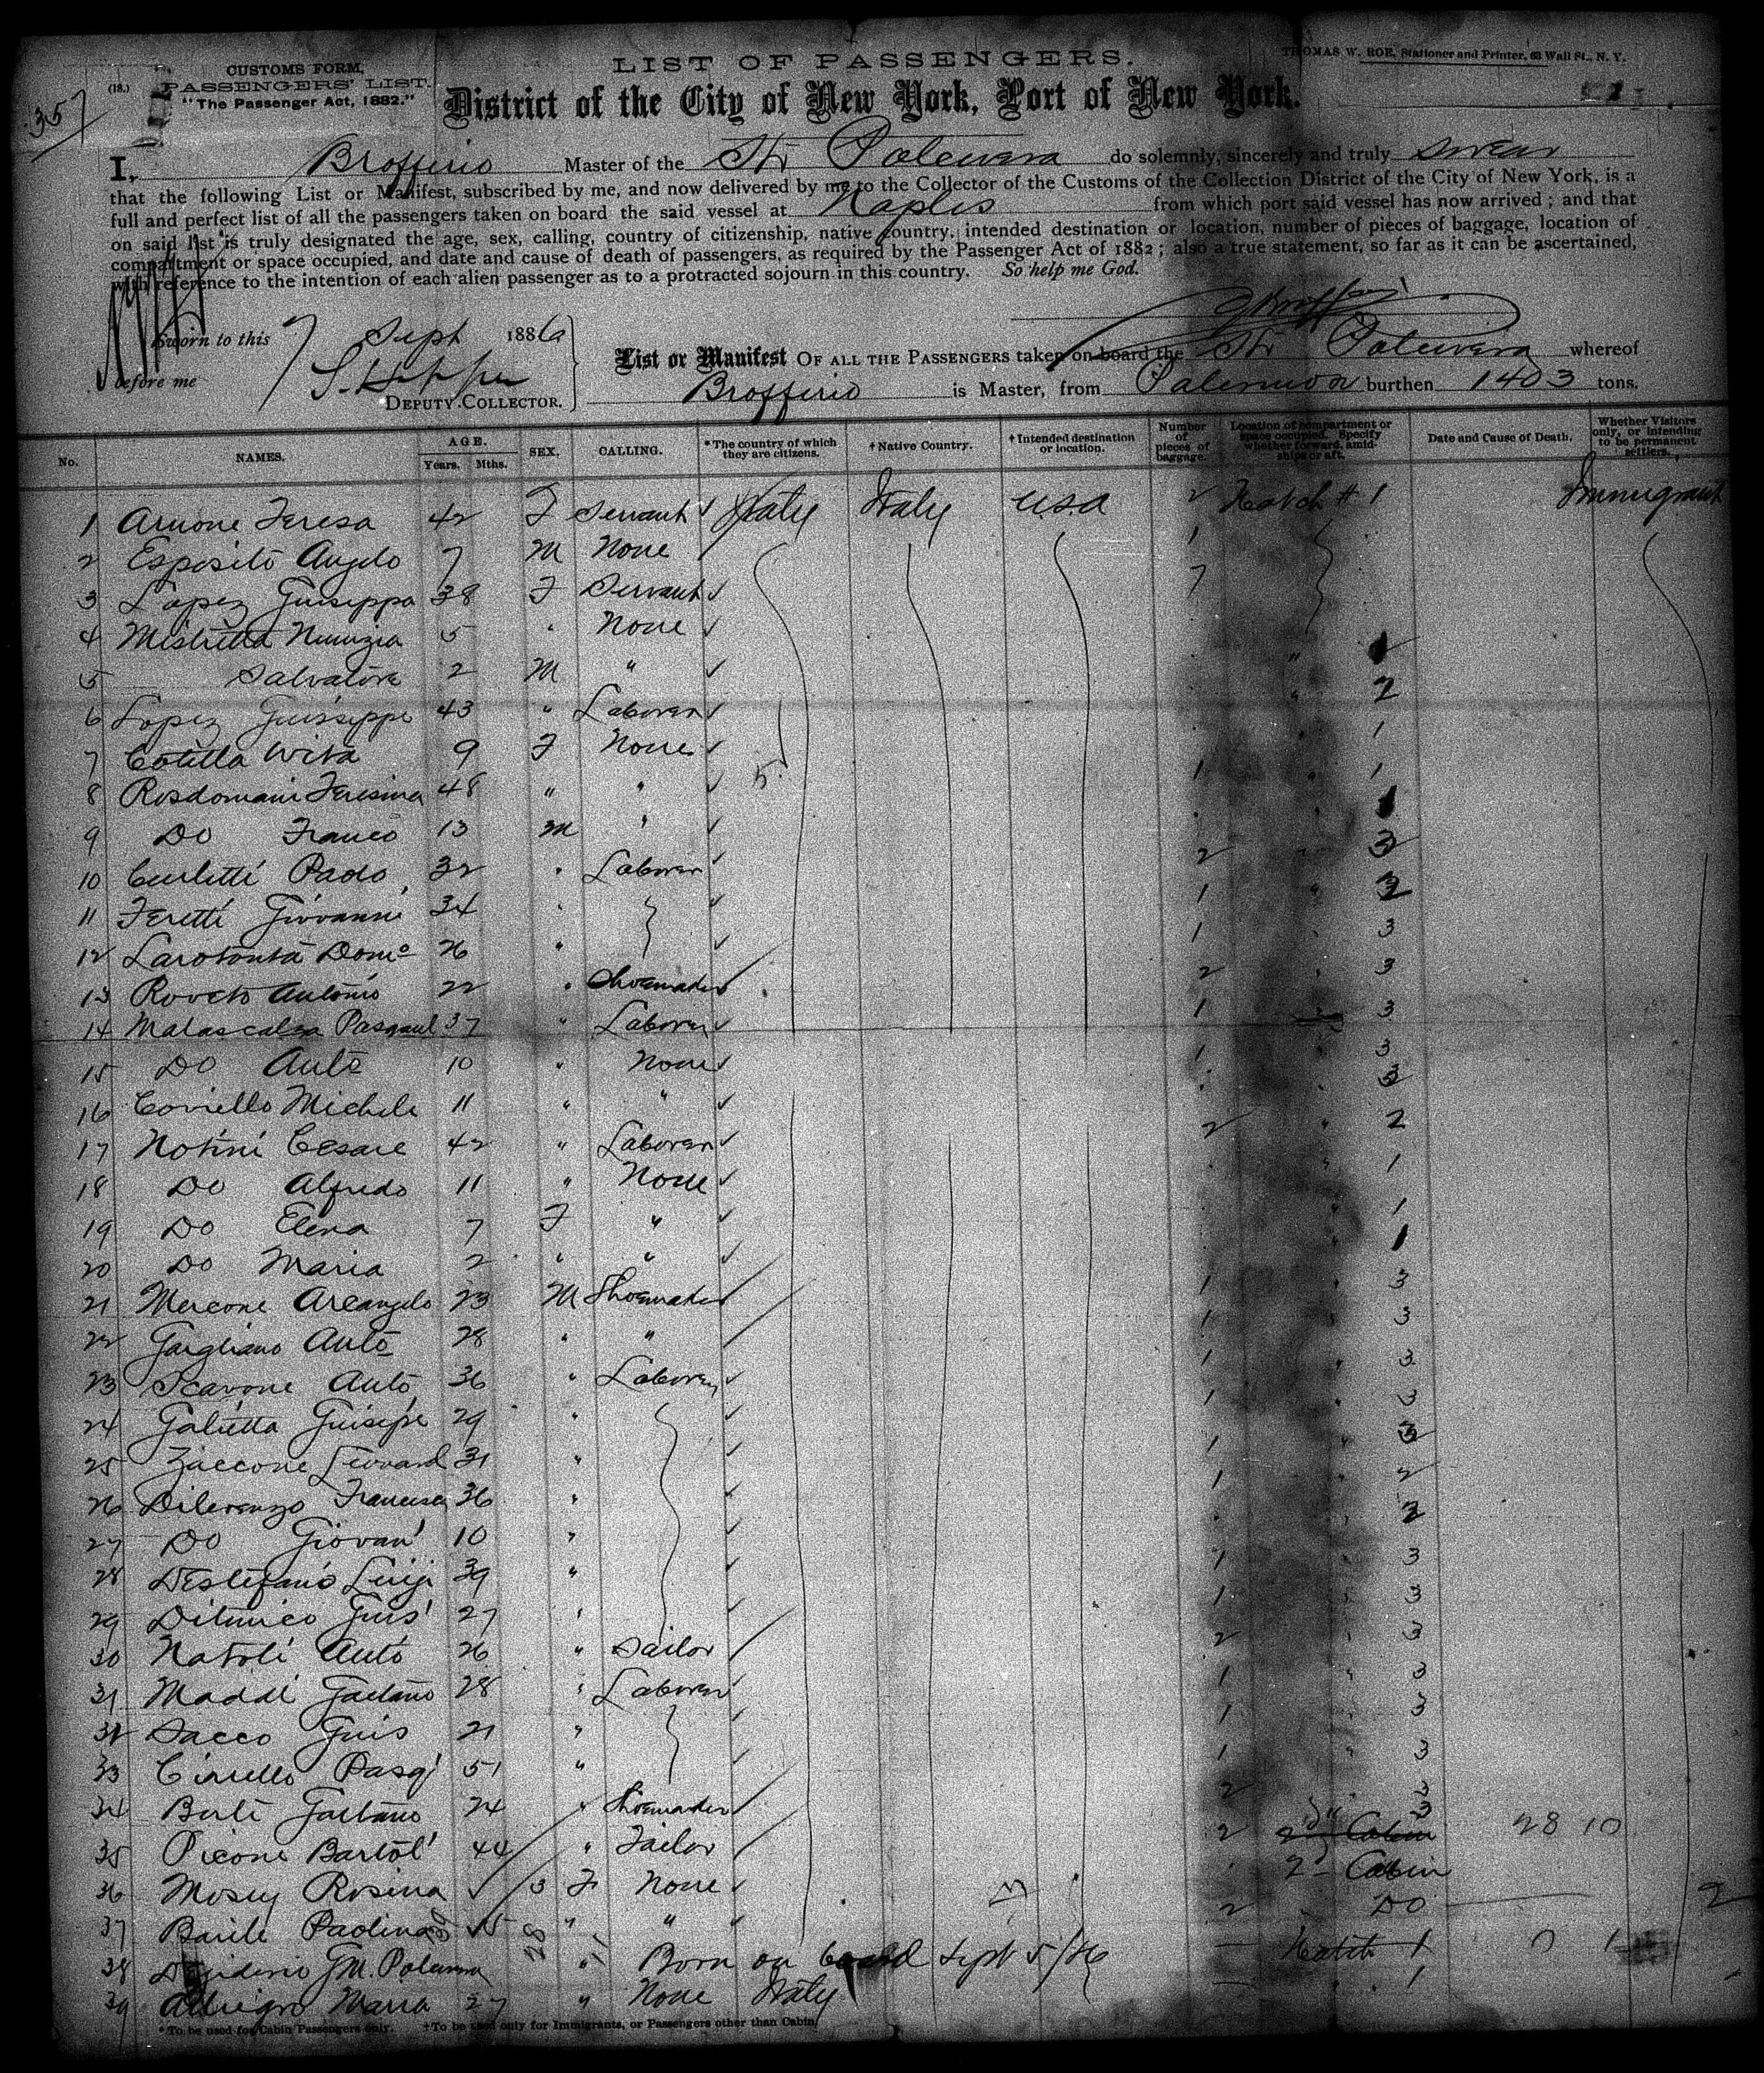 357
(18.) CUSTOMS FORM,
PASSENGERS' LIST.
"The Passenger Act, 1882."
LIST OF PASSENGERS.
THOMAS W. ROE, Stationer and Printer, 63 Wall St., N. Y.
District of the City of New York, Port of New York.
I, Brofferio Master of the Str Polcevera do solemnly, sincerely and truly swear
that the following List or Manifest, subscribed by me, and now delivered by me to the Collector of the Customs of the Collection District of the City of New York, is a
full and perfect list of all the passengers taken on board the said vessel at Naples from which port said vessel has now arrived; and that
on said list is truly designated the age, sex, calling, country of citizenship, native country, intended destination or location, number of pieces of baggage, location of
compartment or space occupied, and date and cause of death of passengers, as required by the Passenger Act of 1882; also a true statement, so far as it can be ascertained,
with reference to the intention of each alien passenger as to a protracted sojourn in this country. So help me God.
Sworn to this 7 Sept 1886
before me
DEPUTY COLLECTOR.
List or Manifest OF ALL THE PASSENGERS taken on board the Str Polcevera whereof
Brofferio is Master, from Palermo burthen 1403 tons.
No. NAMES. AGE. Years. Mths. SEX. CALLING. *The country of which they are citizens. †Native Country. †Intended destination or location. Number of pieces of baggage. Location of compartment or space occupied. Specify whether forward, amidships or aft. Date and Cause of Death. Whether Visitors only, or intending to be permanent settlers.
1 Arnone Teresa 42 F Servant Italy Italy U.S.A 2 Hatch # 1 Immigrant
2 Esposito Angelo 7 M None 1
3 Lopez Guiseppa 38 F Servant 7
4 Mistretta Nunzia 5 " None " 1
5 Salvatore 2 M " " 2
6 Lopez Guiseppe 43 " Laborer " 1
7 Cotella Vita 9 F None 1 " 1
8 Rosdomani Teresina 48 " " 1
9 Do Franco 13 M " 3
10 Curletti Paolo 32 " Laborer 2 " 3
11 Feretti Giovanni 34 " 1 " 3
12 Larotonta Domo 26 " 1 " 3
13 Roveto Antonio 22 " Shoemaker 2 " 3
14 Malascalza Pasquul 37 " Laborer 1 3
15 Do Anto 10 " None 1 3
16 Coviello Michele 11 " " 2
17 Notini Cesare 42 " Laborer 2 " 1
18 Do Alfredo 11 " None " 1
19 Do Elena 7 F " " 1
20 Do Maria 2 " "
21 Mercone Arcangelo 23 M Shoemaker 1 3
22 Gargliano Anto 28 " " 1 3
23 Scavone Anto 36 " Laborer 1 " 3
24 Galietta Guisepe 29 " 1 3
25 Zaccone Leonard 31 " 1 " 2
26 Dilorenzo Francesc 36 " 1 " 2
27 Do Giovan' 10 "
28 DEstefano Luigi 39 " 1 " 3
29 Ditunico Guis' 27 " 1 3
30 Natoli Anto 26 " Sailor 2 3
31 Maddi Gaetano 28 " Laborer 1 " 3
32 Sacco Guis 21 " 1 3
33 Cirello Pasq' 51 " 1 " 3
34 Berte Gaetano 24 " Shoemaker 2 " 3
35 Picone Bartol' 44 " Tailor 2 2d Cabin 28 10
36 Mosey Rosina 3 F None 2d Cabin
37 Barile Paolina " " 2 " Do 2
38 Desiderio G.M. Polcevera " Born on board Sept 5/86 — Hatch 1
39 Allegro Maria 27 " None Italy — " 1
*To be used for Cabin Passengers only. †To be used only for Immigrants, or Passengers other than Cabin.